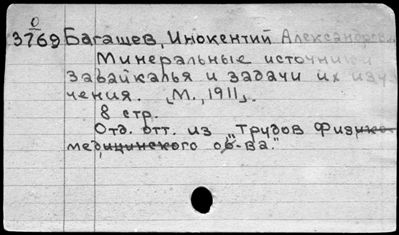 0
3769 Багашев, Инокентий Александрович
Минеральные источники
Забайкалья и задачи их изу
чения. [М., 1911].
8 стр.
Отд. отт. из „Трудов Физико-
медицинского об-ва."